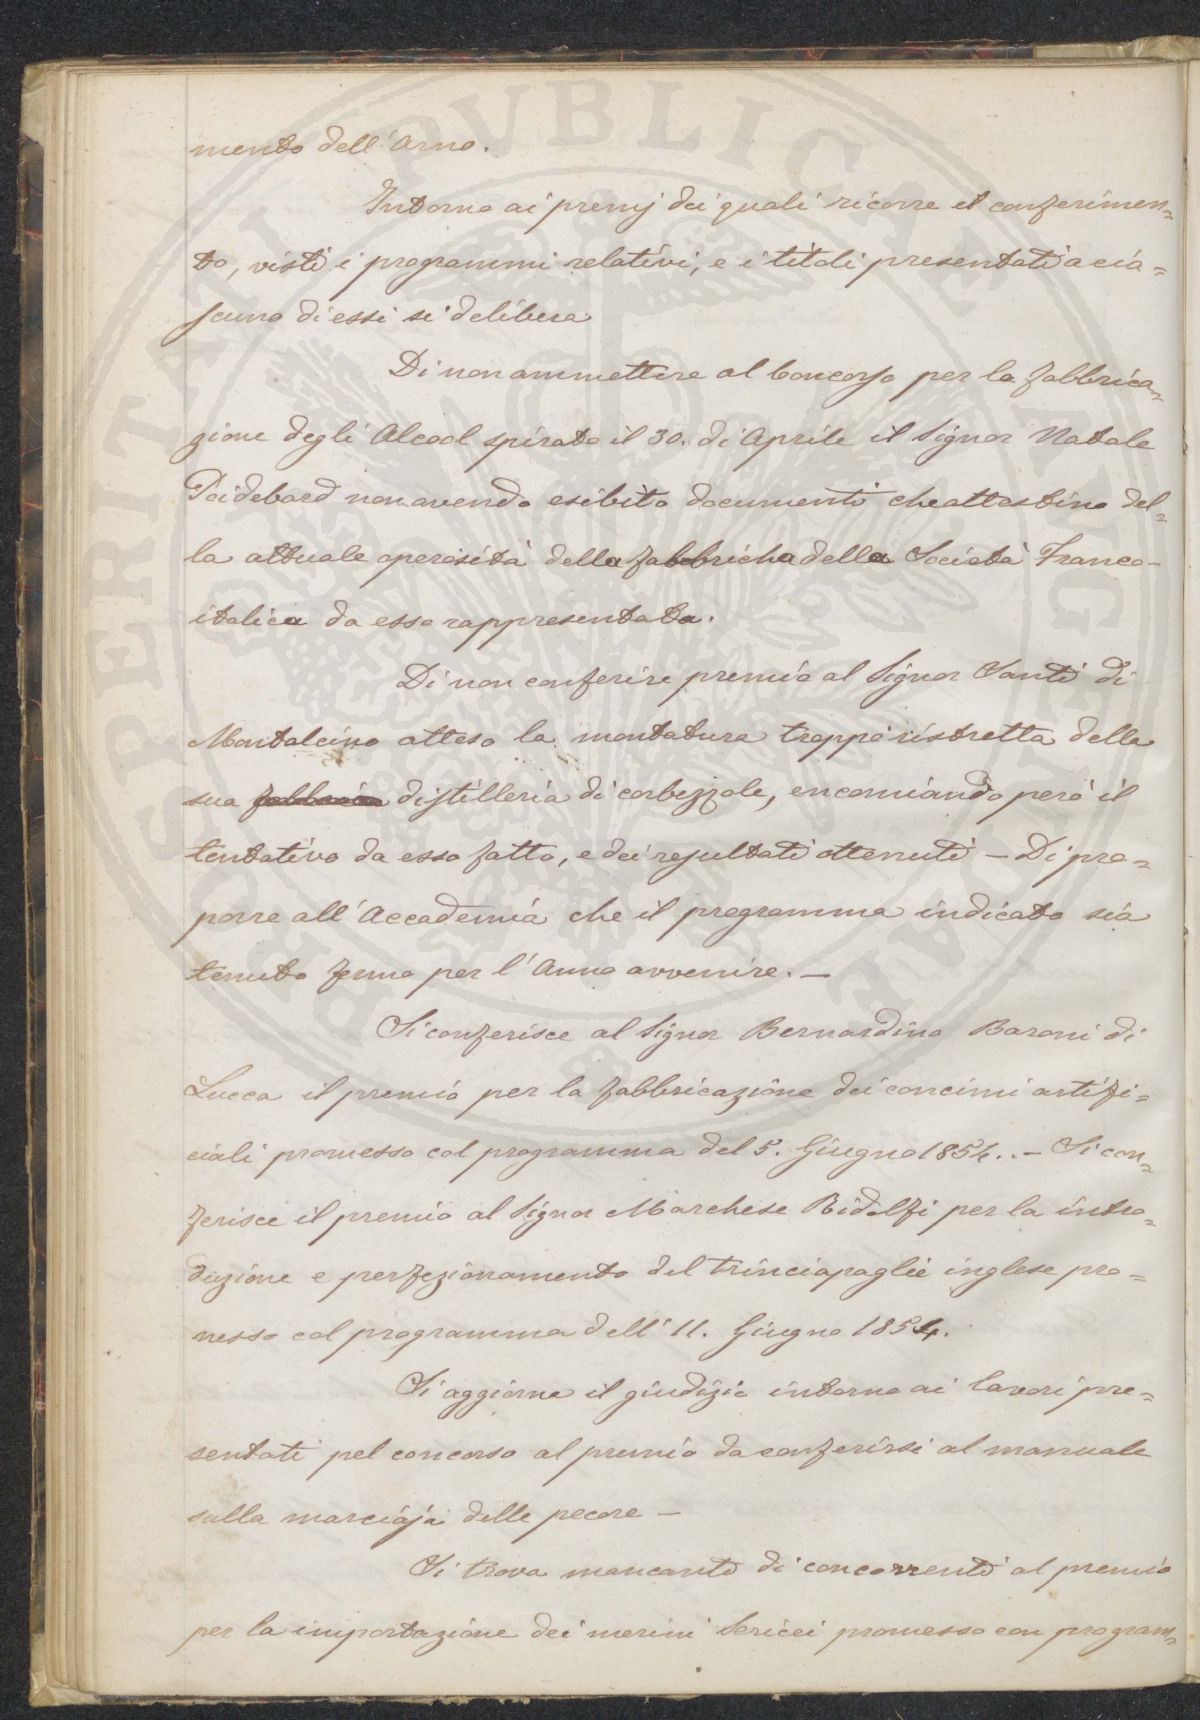 mento dell'Arno.
Intorno ai premj dei quali ricorre il conferimen=
to, visti i programmi relativi, e i titoli presentati a cia=
scuno di essi si delibera
Di non ammettere al Concorso per la fabbrica=
zione degli Alcool spirato il 30. di Aprile il Signor Natale
Poidebard non avendo esibito documenti che attestino del=
la attuale operosità della fabbricha della Società Franco-
italica da esso rappresentata.
Di non conferire premio al Signor Santi di
Montalcino atteso la montatura troppo ristretta della
sua fabbrica distilleria di corbezzole, encomiando però il
tentativo da esso fatto, e dei resultati ottenuti — Di pro=
porre all'Accademia che il programma indicato sia
tenuto fermo per l'Anno avvenire. —
Si conferisce al Signor Bernardino Baroni di
Lucca il premio per la fabbricazione dei concimi artifi=
ciali promesso col programma del 5. Giugno 1854. . — Si con=
ferisce il premio al Signor Marchese Ridolfi per la intro=
duzione e perfezionamento del trinciapaglie inglese pro=
messo col programma dell' 11. Giugno 1854.
Si aggiorna il giudizio intorno ai lavori pre=
sentati pel concorso al premio da conferirsi al manuale
sulla marciaja delle pecore —
Si trova mancanti di concorrenti al premio
per la importazione dei merini Sericei promesso con program=
PROSPERITATI PUBLICAE AUGENDAE